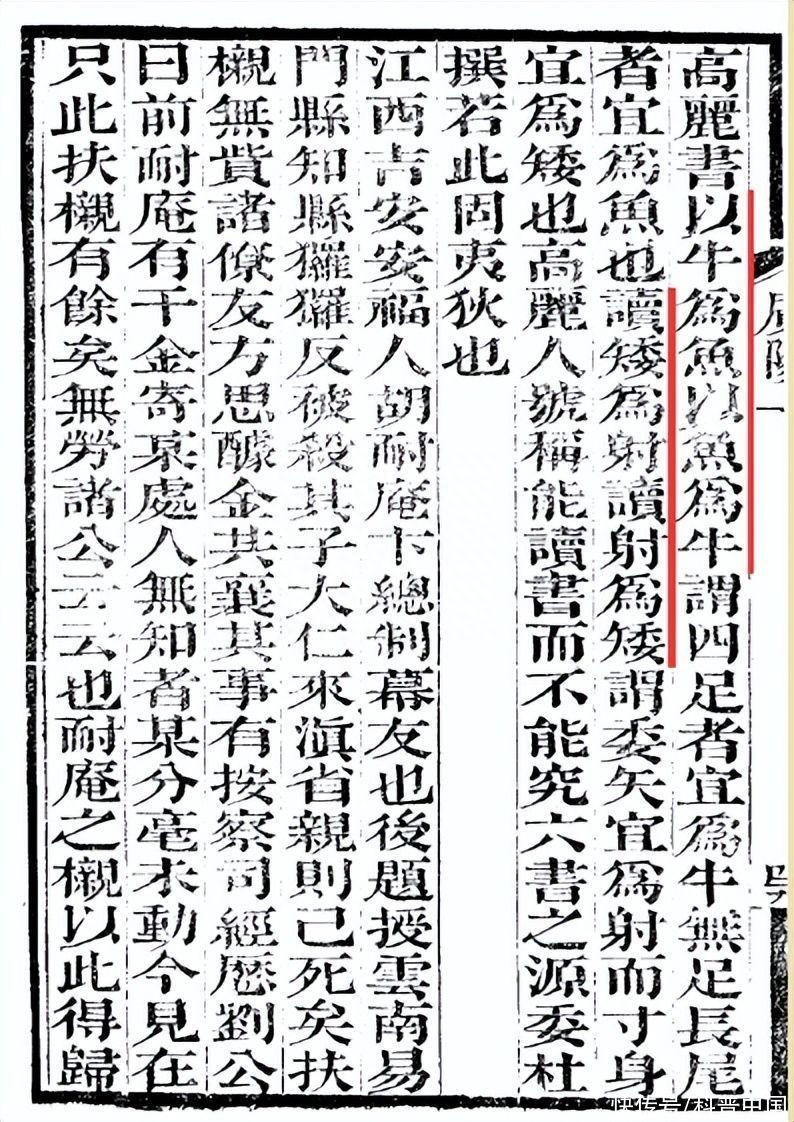 高麗書以牛爲魚以魚爲牛謂四足者宜爲牛無足長尾
者宜爲魚也讀矮爲射讀射爲矮謂委矢宜爲射而寸身
宜爲矮也高麗人號稱能讀書而不能究六書之源委杜
撰若此固夷狄也
江西吉安安福人胡耐庵卞總制幕友也後題授雲南易
門縣知縣玀玀反破殺其子大仁來滇省親則已死矣扶
櫬無貲諸僚友方思醵金共襄其事有按察司經歷劉公
曰前耐庵有千金寄某處人無知者某分毫未動今見在
只此扶櫬有餘矣無勞諸公云云也耐庵之櫬以此得歸
快传号/科普中国